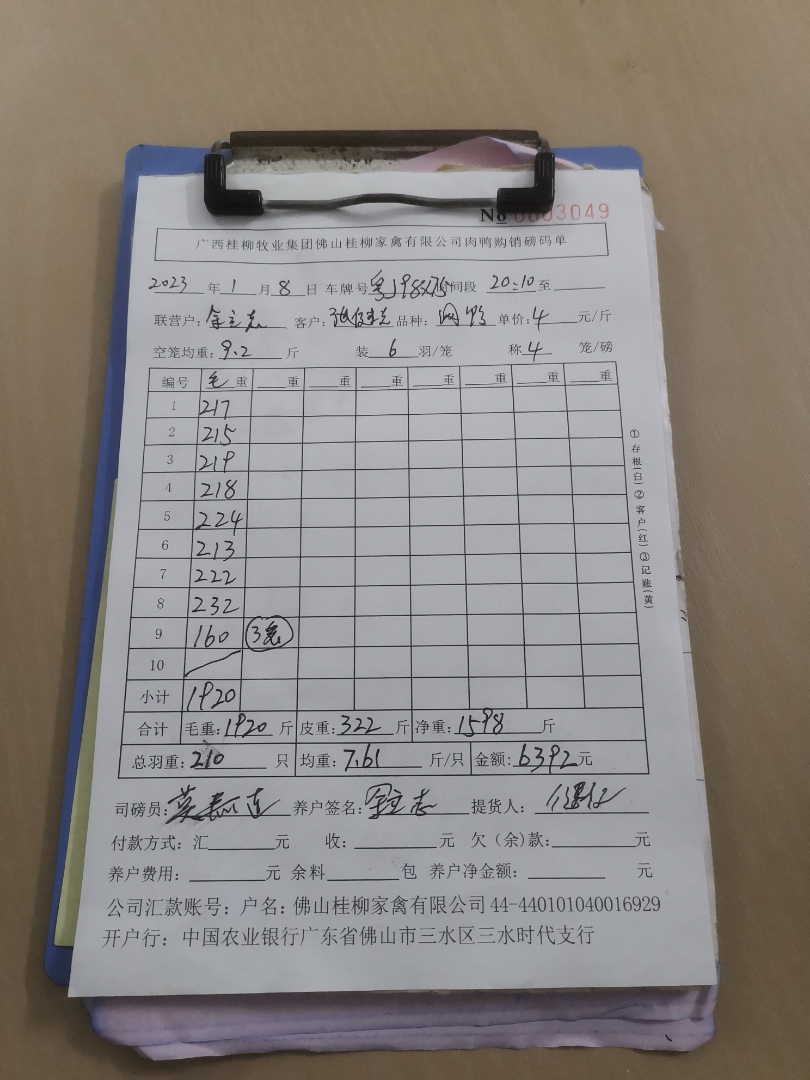 No 0003049
广西桂柳牧业集团佛山桂柳家禽有限公司肉鸭购销磅码单
2023 年 1 月 8 日 车牌号 时间段 20:10 至
联营户: 客户: 品种: 单价: 4 元/斤
空笼均重: 9.2 斤 装 6 羽/笼 称 4 笼/磅
编号 毛 重 重 重 重 重 重 重 重
1 217
2 215
3 219
4 218
5 224
6 213
7 222
8 232
9 160 3笼
10
小计 1920
合计 毛重: 1920 斤 皮重: 322 斤 净重: 1598 斤
总羽重: 210 只 均重: 7.61 斤/只 金额: 6392 元
司磅员: 养户签名: 提货人:
付款方式: 汇 元 收: 元 欠(余)款: 元
养户费用: 元 余料 包 养户净金额: 元
公司汇款账号: 户名: 佛山桂柳家禽有限公司 44-440101040016929
开户行: 中国农业银行广东省佛山市三水区三水时代支行
①存根(白)②客户(红)③记账(黄)